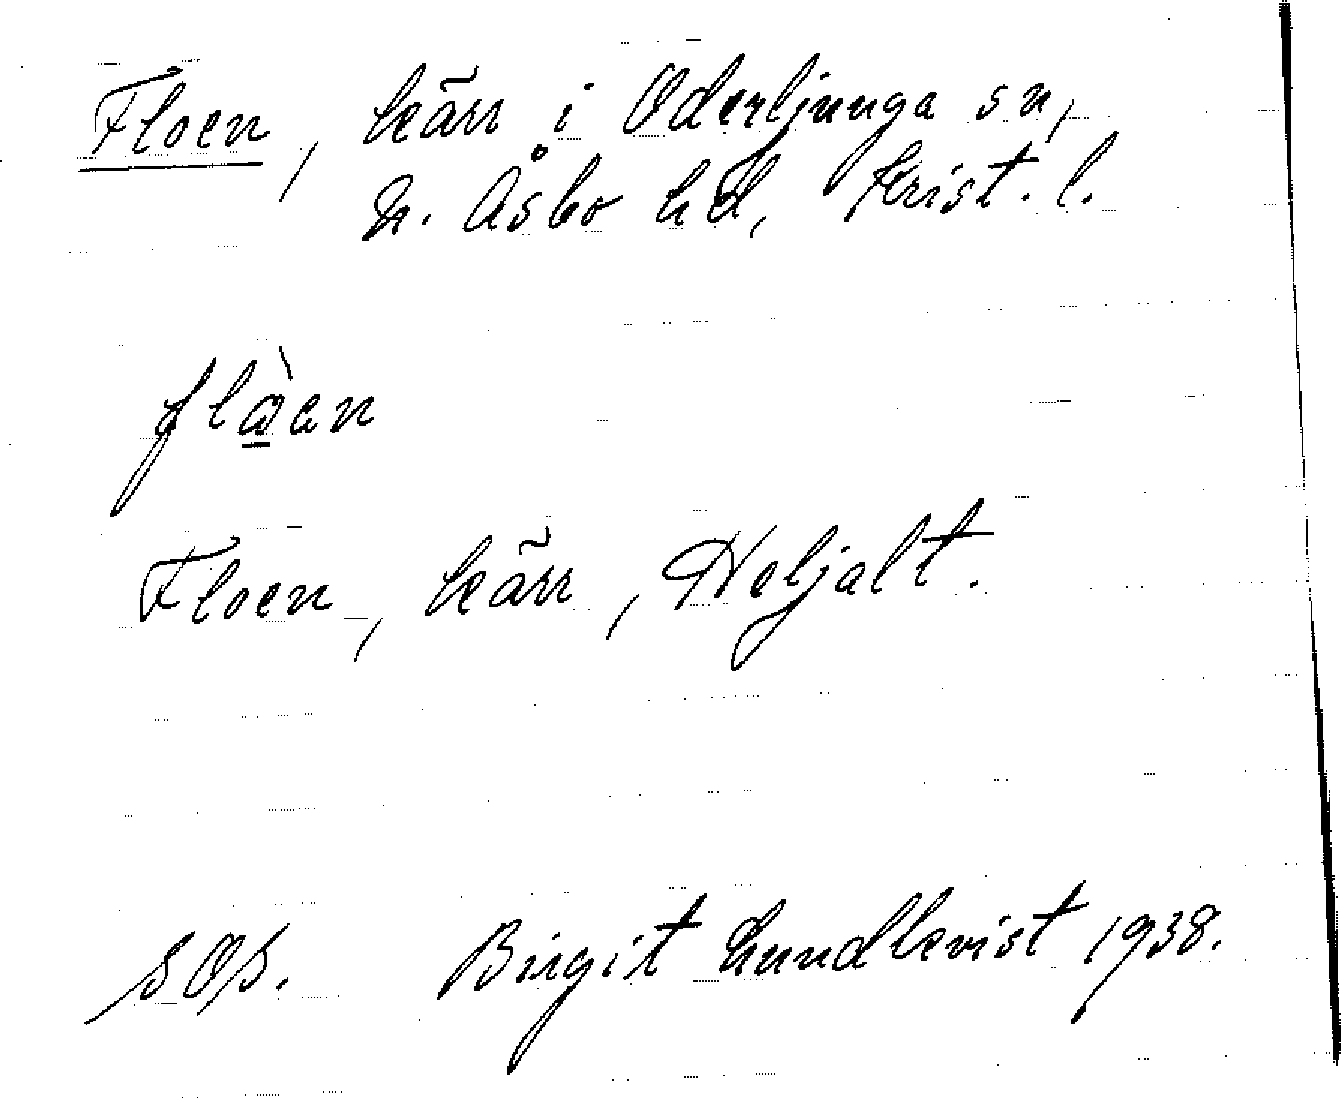 Floen, kärr i Oderljunga sn,
N. Åsbo hd, Krist. l.
flò̱en
Floen, kärr, Heljalt.
SOÞ. Birgit Lundkvist 1938.